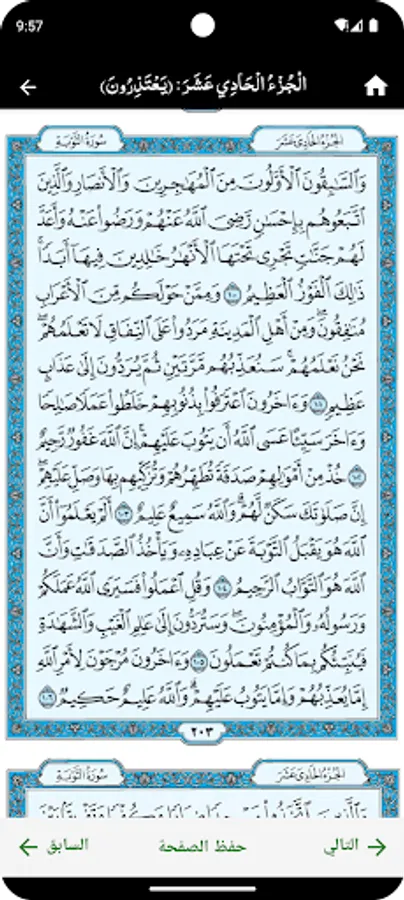 9:57
الْجُزْءُ الْحَادِي عَشَرَ: (يَعْتَذِرُونَ)
الجزء الحادي عشر
سورة التوبة
وَالسَّٰبِقُونَ الْأَوَّلُونَ مِنَ الْمُهَٰجِرِينَ وَالْأَنصَارِ وَالَّذِينَ
اتَّبَعُوهُم بِإِحْسَٰنٍ رَّضِيَ اللَّهُ عَنْهُمْ وَرَضُوا عَنْهُ وَأَعَدَّ
لَهُمْ جَنَّٰتٍ تَجْرِي تَحْتَهَا الْأَنْهَٰرُ خَٰلِدِينَ فِيهَا أَبَدًا ۚ
ذَٰلِكَ الْفَوْزُ الْعَظِيمُ ١٠٠ وَمِمَّنْ حَوْلَكُم مِّنَ الْأَعْرَابِ
مُنَٰفِقُونَ ۖ وَمِنْ أَهْلِ الْمَدِينَةِ مَرَدُوا عَلَى النِّفَاقِ لَا تَعْلَمُهُمْ ۖ
نَحْنُ نَعْلَمُهُمْ ۚ سَنُعَذِّبُهُم مَّرَّتَيْنِ ثُمَّ يُرَدُّونَ إِلَىٰ عَذَابٍ
عَظِيمٍ ١٠١ وَءَاخَرُونَ اعْتَرَفُوا بِذُنُوبِهِمْ خَلَطُوا عَمَلًا صَٰلِحًا
وَءَاخَرَ سَيِّئًا عَسَى اللَّهُ أَن يَتُوبَ عَلَيْهِمْ ۚ إِنَّ اللَّهَ غَفُورٌ رَّحِيمٌ
١٠٢ خُذْ مِنْ أَمْوَٰلِهِمْ صَدَقَةً تُطَهِّرُهُمْ وَتُزَكِّيهِم بِهَا وَصَلِّ عَلَيْهِمْ ۖ
إِنَّ صَلَوٰتَكَ سَكَنٌ لَّهُمْ ۗ وَاللَّهُ سَمِيعٌ عَلِيمٌ ١٠٣ أَلَمْ يَعْلَمُوا أَنَّ
اللَّهَ هُوَ يَقْبَلُ التَّوْبَةَ عَنْ عِبَادِهِ وَيَأْخُذُ الصَّدَقَٰتِ وَأَنَّ
اللَّهَ هُوَ التَّوَّابُ الرَّحِيمُ ١٠٤ وَقُلِ اعْمَلُوا فَسَيَرَى اللَّهُ عَمَلَكُمْ
وَرَسُولُهُ وَالْمُؤْمِنُونَ ۖ وَسَتُرَدُّونَ إِلَىٰ عَٰلِمِ الْغَيْبِ وَالشَّهَٰدَةِ
فَيُنَبِّئُكُم بِمَا كُنتُمْ تَعْمَلُونَ ١٠٥ وَءَاخَرُونَ مُرْجَوْنَ لِأَمْرِ اللَّهِ
إِمَّا يُعَذِّبُهُمْ وَإِمَّا يَتُوبُ عَلَيْهِمْ ۗ وَاللَّهُ عَلِيمٌ حَكِيمٌ ١٠٦
٢٠٣
الجزء الحادي عشر
سورة التوبة
التالي
حفظ الصفحة
السابق